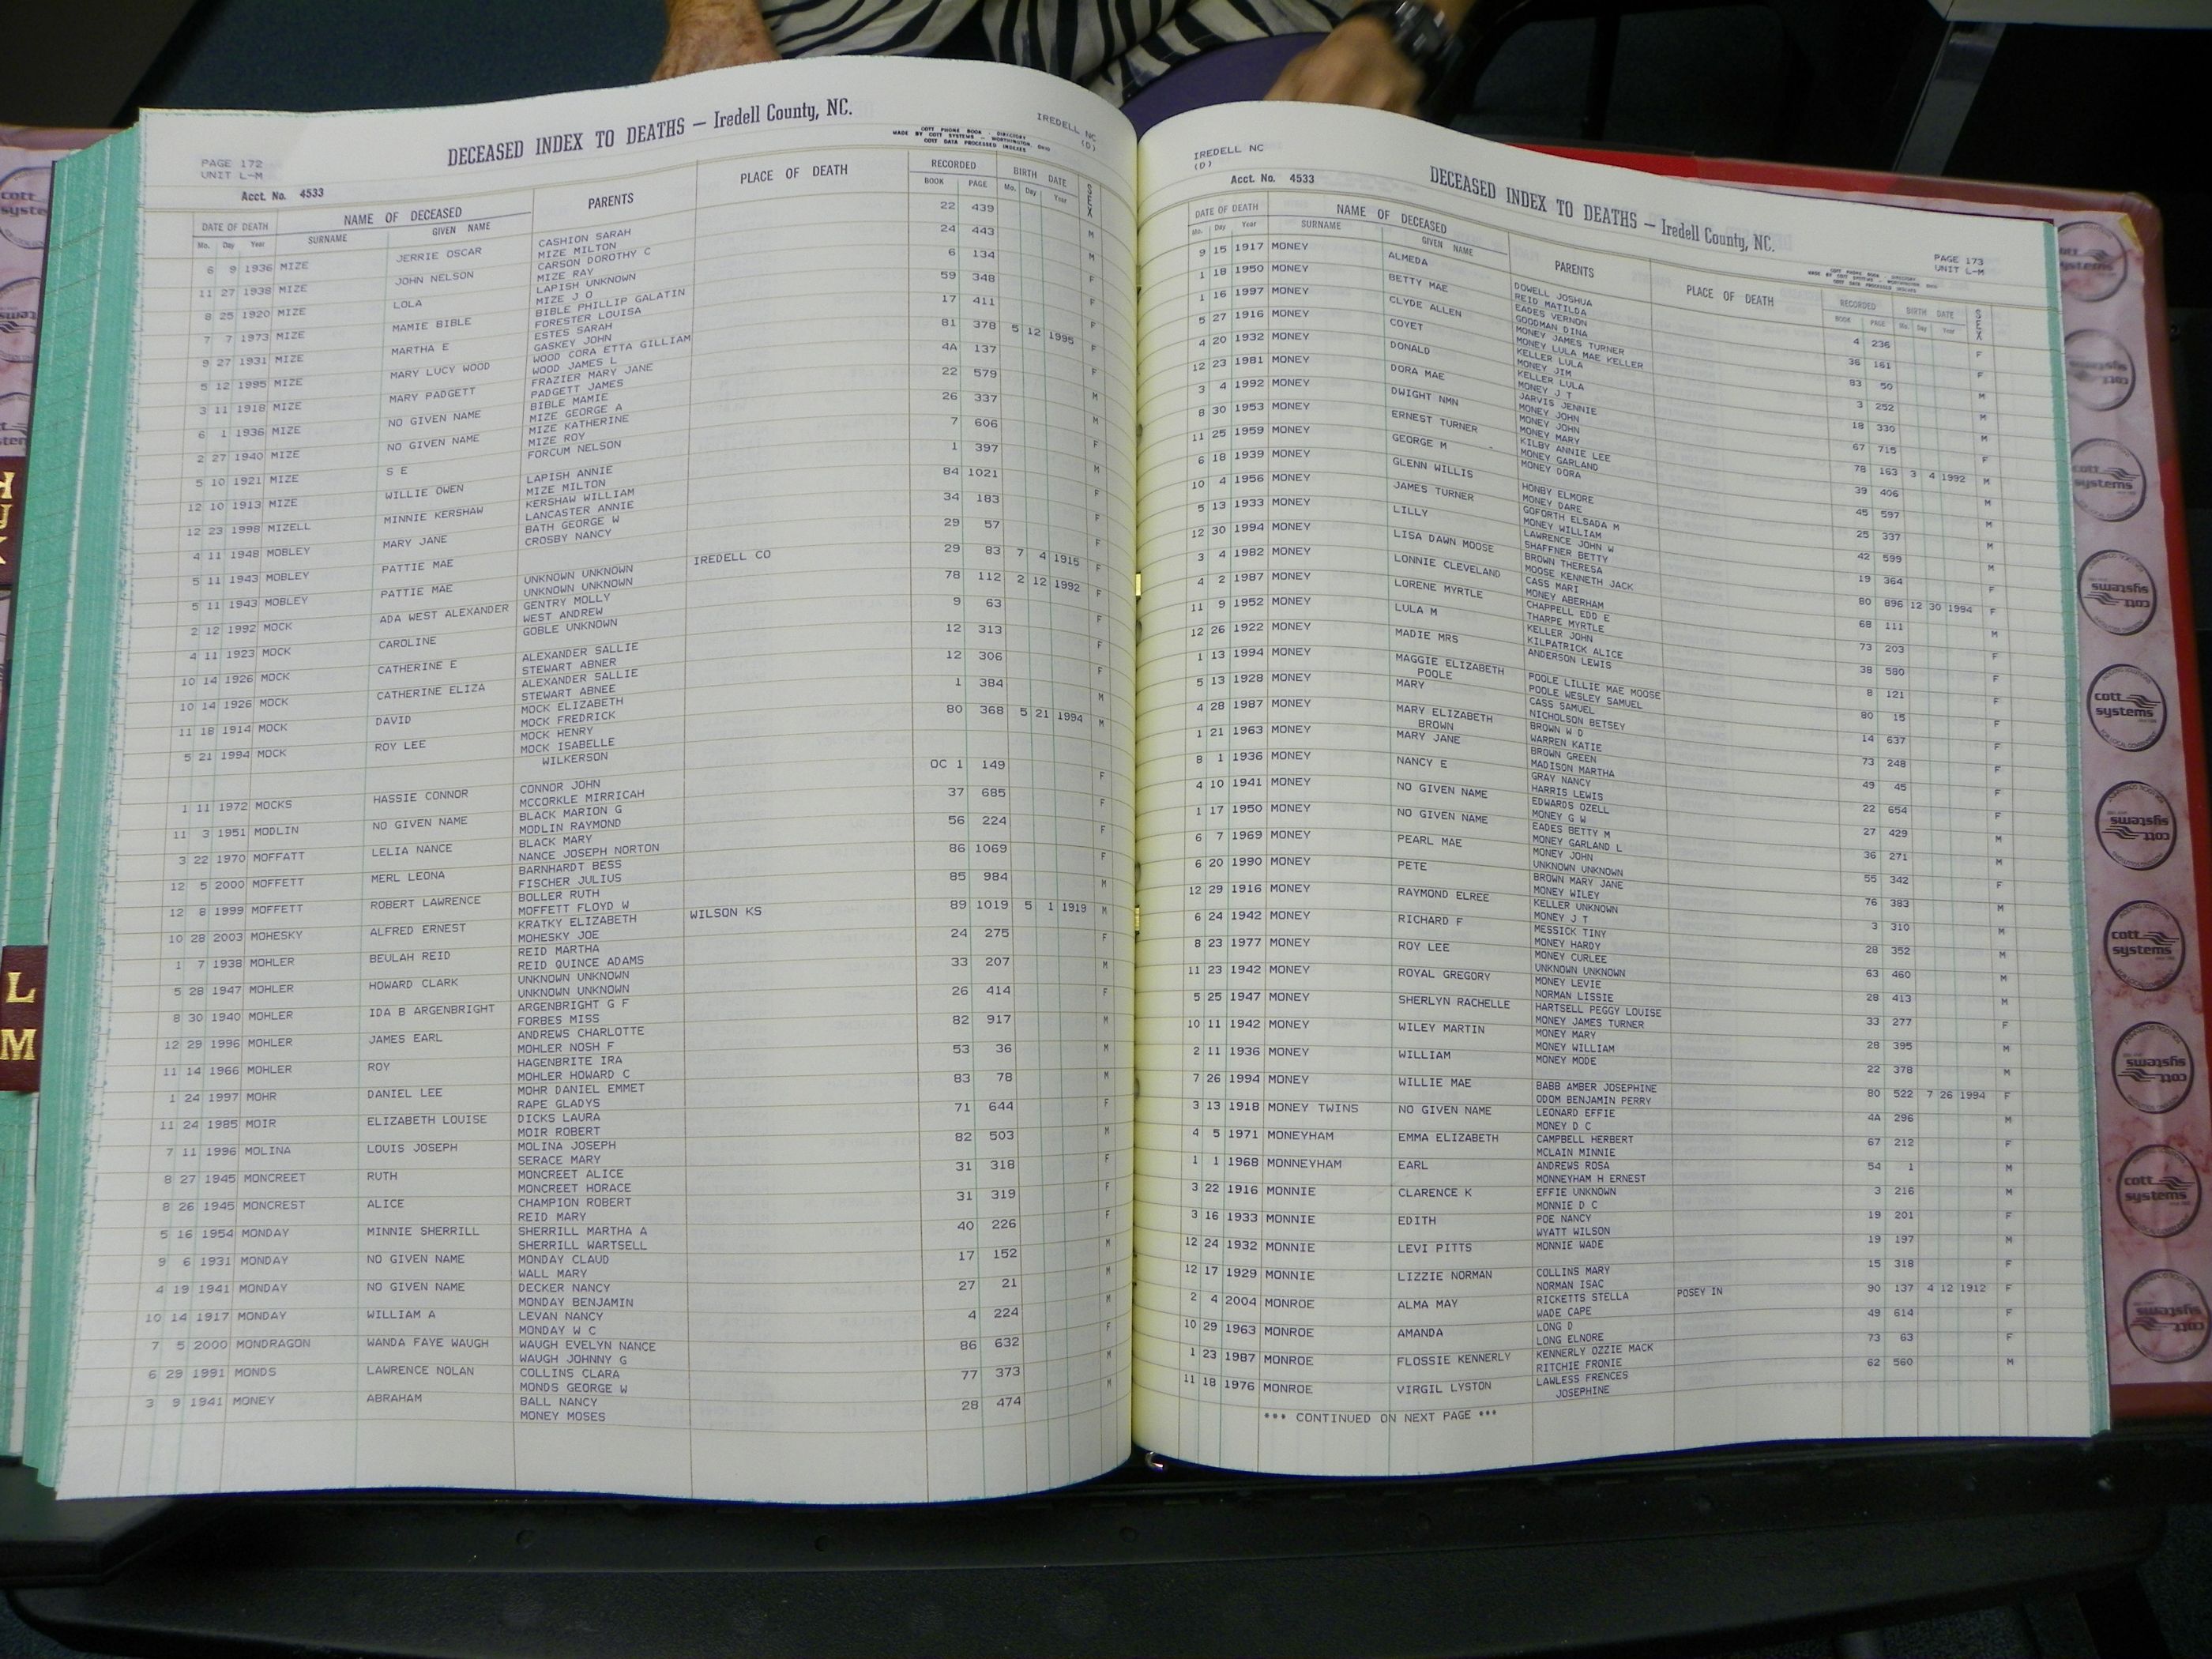 DECEASED INDEX TO DEATHS — Iredell County, NC.
IREDELL NC
(D)
COTT PHONE BOOK - DIRECTORY
MADE BY COTT SYSTEMS — WORTHINGTON, OHIO
COTT DATA PROCESSED INDEXES
PAGE 172
UNIT L-M
Acct. No. 4533
DATE OF DEATH NAME OF DECEASED PARENTS PLACE OF DEATH RECORDED BIRTH DATE SEX
Mo. Day Year SURNAME GIVEN NAME BOOK PAGE Mo. Day Year
6 9 1936 MIZE JERRIE OSCAR CASHION SARAH 22 439 M
MIZE MILTON
11 27 1938 MIZE JOHN NELSON CARSON DOROTHY C 24 443 M
MIZE RAY
8 25 1920 MIZE LOLA LAPISH UNKNOWN 6 134 F
MIZE J O
7 7 1973 MIZE MAMIE BIBLE BIBLE PHILLIP GALATIN 59 348 F
FORESTER LOUISA
9 27 1931 MIZE MARTHA E ESTES SARAH 17 411 F
GASKEY JOHN
5 12 1995 MIZE MARY LUCY WOOD WOOD CORA ETTA GILLIAM 81 378 5 12 1995 F
WOOD JAMES L
3 11 1918 MIZE MARY PADGETT FRAZIER MARY JANE 4A 137 F
PADGETT JAMES
6 1 1936 MIZE NO GIVEN NAME BIBLE MAMIE 22 579 M
MIZE GEORGE A
2 27 1940 MIZE NO GIVEN NAME MIZE KATHERINE 26 337 M
MIZE ROY
5 10 1921 MIZE S E FORCUM NELSON 7 606 F
12 10 1913 MIZE WILLIE OWEN LAPISH ANNIE 1 397 M
MIZE MILTON
12 23 1998 MIZELL MINNIE KERSHAW KERSHAW WILLIAM 84 1021 F
LANCASTER ANNIE
4 11 1948 MOBLEY MARY JANE BATH GEORGE W 34 183 F
CROSBY NANCY
5 11 1943 MOBLEY PATTIE MAE 29 57 F
5 11 1943 MOBLEY PATTIE MAE UNKNOWN UNKNOWN IREDELL CO 29 83 7 4 1915 F
UNKNOWN UNKNOWN
2 12 1992 MOCK ADA WEST ALEXANDER GENTRY MOLLY 78 112 2 12 1992 F
WEST ANDREW
4 11 1923 MOCK CAROLINE GOBLE UNKNOWN 9 63 F
10 14 1926 MOCK CATHERINE E ALEXANDER SALLIE 12 313 F
STEWART ABNER
10 14 1926 MOCK CATHERINE ELIZA ALEXANDER SALLIE 12 306 F
STEWART ABNEE
11 18 1914 MOCK DAVID MOCK ELIZABETH 1 384 M
MOCK FREDRICK
5 21 1994 MOCK ROY LEE MOCK HENRY 80 368 5 21 1994 M
MOCK ISABELLE
WILKERSON
1 11 1972 MOCKS HASSIE CONNOR CONNOR JOHN OC 1 149 F
MCCORKLE MIRRICAH
11 3 1951 MODLIN NO GIVEN NAME BLACK MARION G 37 685 F
MODLIN RAYMOND
3 22 1970 MOFFATT LELIA NANCE BLACK MARY 56 224 F
NANCE JOSEPH NORTON
12 5 2000 MOFFETT MERL LEONA BARNHARDT BESS 86 1069 F
FISCHER JULIUS
12 8 1999 MOFFETT ROBERT LAWRENCE BOLLER RUTH 85 984 M
MOFFETT FLOYD W
10 28 2003 MOHESKY ALFRED ERNEST KRATKY ELIZABETH WILSON KS 89 1019 5 1 1919 M
MOHESKY JOE
1 7 1938 MOHLER BEULAH REID REID MARTHA 24 275 F
REID QUINCE ADAMS
5 28 1947 MOHLER HOWARD CLARK UNKNOWN UNKNOWN 33 207 M
UNKNOWN UNKNOWN
8 30 1940 MOHLER IDA B ARGENBRIGHT ARGENBRIGHT G F 26 414 F
FORBES MISS
12 29 1996 MOHLER JAMES EARL ANDREWS CHARLOTTE 82 917 M
MOHLER NOSH F
11 14 1966 MOHLER ROY HAGENBRITE IRA 53 36 M
MOHLER HOWARD C
1 24 1997 MOHR DANIEL LEE MOHR DANIEL EMMET 83 78 M
RAPE GLADYS
11 24 1985 MOIR ELIZABETH LOUISE DICKS LAURA 71 644 F
MOIR ROBERT
7 11 1996 MOLINA LOUIS JOSEPH MOLINA JOSEPH 82 503 M
SERACE MARY
8 27 1945 MONCREET RUTH MONCREET ALICE 31 318 F
MONCREET HORACE
8 26 1945 MONCREST ALICE CHAMPION ROBERT 31 319 F
REID MARY
5 16 1954 MONDAY MINNIE SHERRILL SHERRILL MARTHA A 40 226 F
SHERRILL WARTSELL
9 6 1931 MONDAY NO GIVEN NAME MONDAY CLAUD 17 152 M
WALL MARY
4 19 1941 MONDAY NO GIVEN NAME DECKER NANCY 27 21 M
MONDAY BENJAMIN
10 14 1917 MONDAY WILLIAM A LEVAN NANCY 4 224 M
MONDAY W C
7 5 2000 MONDRAGON WANDA FAYE WAUGH WAUGH EVELYN NANCE 86 632 F
WAUGH JOHNNY G
6 29 1991 MONDS LAWRENCE NOLAN COLLINS CLARA 77 373 M
MONDS GEORGE W
3 9 1941 MONEY ABRAHAM BALL NANCY 28 474 M
MONEY MOSES
IREDELL NC
(D)
DECEASED INDEX TO DEATHS — Iredell County, NC.
Acct. No. 4533
PAGE 173
UNIT L-M
COTT PHONE BOOK - DIRECTORY
MADE BY COTT SYSTEMS — WORTHINGTON, OHIO
COTT DATA PROCESSED INDEXES
DATE OF DEATH NAME OF DECEASED PARENTS PLACE OF DEATH RECORDED BIRTH DATE SEX
Mo. Day Year SURNAME GIVEN NAME BOOK PAGE Mo. Day Year
9 15 1917 MONEY ALMEDA DOWELL JOSHUA 4 236 F
REID MATILDA
1 18 1950 MONEY BETTY MAE EADES VERNON 36 161 F
GOODMAN DINA
1 16 1997 MONEY CLYDE ALLEN MONEY JAMES TURNER 83 50 M
MONEY LULA MAE KELLER
5 27 1916 MONEY COYET KELLER LULA 3 252 M
MONEY JIM
4 20 1932 MONEY DONALD KELLER LULA 18 330 M
MONEY J T
12 23 1981 MONEY DORA MAE JARVIS JENNIE 67 715 F
MONEY JOHN
3 4 1992 MONEY DWIGHT NMN MONEY JOHN 78 163 3 4 1992 M
MONEY MARY
8 30 1953 MONEY ERNEST TURNER KILBY ANNIE LEE 39 406 M
MONEY GARLAND
11 25 1959 MONEY GEORGE M MONEY DORA 45 597 M
6 18 1939 MONEY GLENN WILLIS HONBY ELMORE 25 337 M
MONEY DARE
10 4 1956 MONEY JAMES TURNER GOFORTH ELSADA M 42 599 M
MONEY WILLIAM
5 13 1933 MONEY LILLY LAWRENCE JOHN W 19 364 F
SHAFFNER BETTY
12 30 1994 MONEY LISA DAWN MOOSE BROWN THERESA 80 896 12 30 1994 F
MOOSE KENNETH JACK
3 4 1982 MONEY LONNIE CLEVELAND CASS MARI 68 111 M
MONEY ABERHAM
4 2 1987 MONEY LORENE MYRTLE CHAPPELL EDD E 73 203 F
THARPE MYRTLE
11 9 1952 MONEY LULA M KELLER JOHN 38 580 F
KILPATRICK ALICE
12 26 1922 MONEY MADIE MRS ANDERSON LEWIS 8 121 F
1 13 1994 MONEY MAGGIE ELIZABETH POOLE LILLIE MAE MOOSE 80 15 F
POOLE POOLE WESLEY SAMUEL
5 13 1928 MONEY MARY CASS SAMUEL 14 637 F
NICHOLSON BETSEY
4 28 1987 MONEY MARY ELIZABETH BROWN W D 73 248 F
BROWN WARREN KATIE
1 21 1963 MONEY MARY JANE BROWN GREEN 49 45 F
MADISON MARTHA
8 1 1936 MONEY NANCY E GRAY NANCY 22 654 F
HARRIS LEWIS
4 10 1941 MONEY NO GIVEN NAME EDWARDS OZELL 27 429 M
MONEY G W
1 17 1950 MONEY NO GIVEN NAME EADES BETTY M 36 271 M
MONEY GARLAND L
6 7 1969 MONEY PEARL MAE MONEY JOHN 55 342 F
UNKNOWN UNKNOWN
6 20 1990 MONEY PETE BROWN MARY JANE 76 383 M
MONEY WILEY
12 29 1916 MONEY RAYMOND ELREE KELLER UNKNOWN 3 310 M
MONEY J T
6 24 1942 MONEY RICHARD F MESSICK TINY 28 352 M
MONEY HARDY
8 23 1977 MONEY ROY LEE MONEY CURLEE 63 460 M
UNKNOWN UNKNOWN
11 23 1942 MONEY ROYAL GREGORY MONEY LEVIE 28 413 M
NORMAN LISSIE
5 25 1947 MONEY SHERLYN RACHELLE HARTSELL PEGGY LOUISE 33 277 F
MONEY JAMES TURNER
10 11 1942 MONEY WILEY MARTIN MONEY MARY 28 395 M
MONEY WILLIAM
2 11 1936 MONEY WILLIAM MONEY MODE 22 378 M
7 26 1994 MONEY WILLIE MAE BABB AMBER JOSEPHINE 80 522 7 26 1994 F
ODOM BENJAMIN PERRY
3 13 1918 MONEY TWINS NO GIVEN NAME LEONARD EFFIE 4A 296 M
MONEY D C
4 5 1971 MONEYHAM EMMA ELIZABETH CAMPBELL HERBERT 67 212 F
MCLAIN MINNIE
1 1 1968 MONNEYHAM EARL ANDREWS ROSA 54 1 M
MONNEYHAM H ERNEST
3 22 1916 MONNIE CLARENCE K EFFIE UNKNOWN 3 216 M
MONNIE D C
3 16 1933 MONNIE EDITH POE NANCY 19 201 F
WYATT WILSON
12 24 1932 MONNIE LEVI PITTS MONNIE WADE 19 197 M
12 17 1929 MONNIE LIZZIE NORMAN COLLINS MARY 15 318 F
NORMAN ISAC
2 4 2004 MONROE ALMA MAY RICKETTS STELLA POSEY IN 90 137 4 12 1912 F
WADE CAPE
10 29 1963 MONROE AMANDA LONG D 49 614 F
LONG ELNORE
1 23 1987 MONROE FLOSSIE KENNERLY KENNERLY OZZIE MACK 73 63 F
RITCHIE FRONIE
11 18 1976 MONROE VIRGIL LYSTON LAWLESS FRENCES 62 560 M
JOSEPHINE
*** CONTINUED ON NEXT PAGE ***
L
M
cott
systems